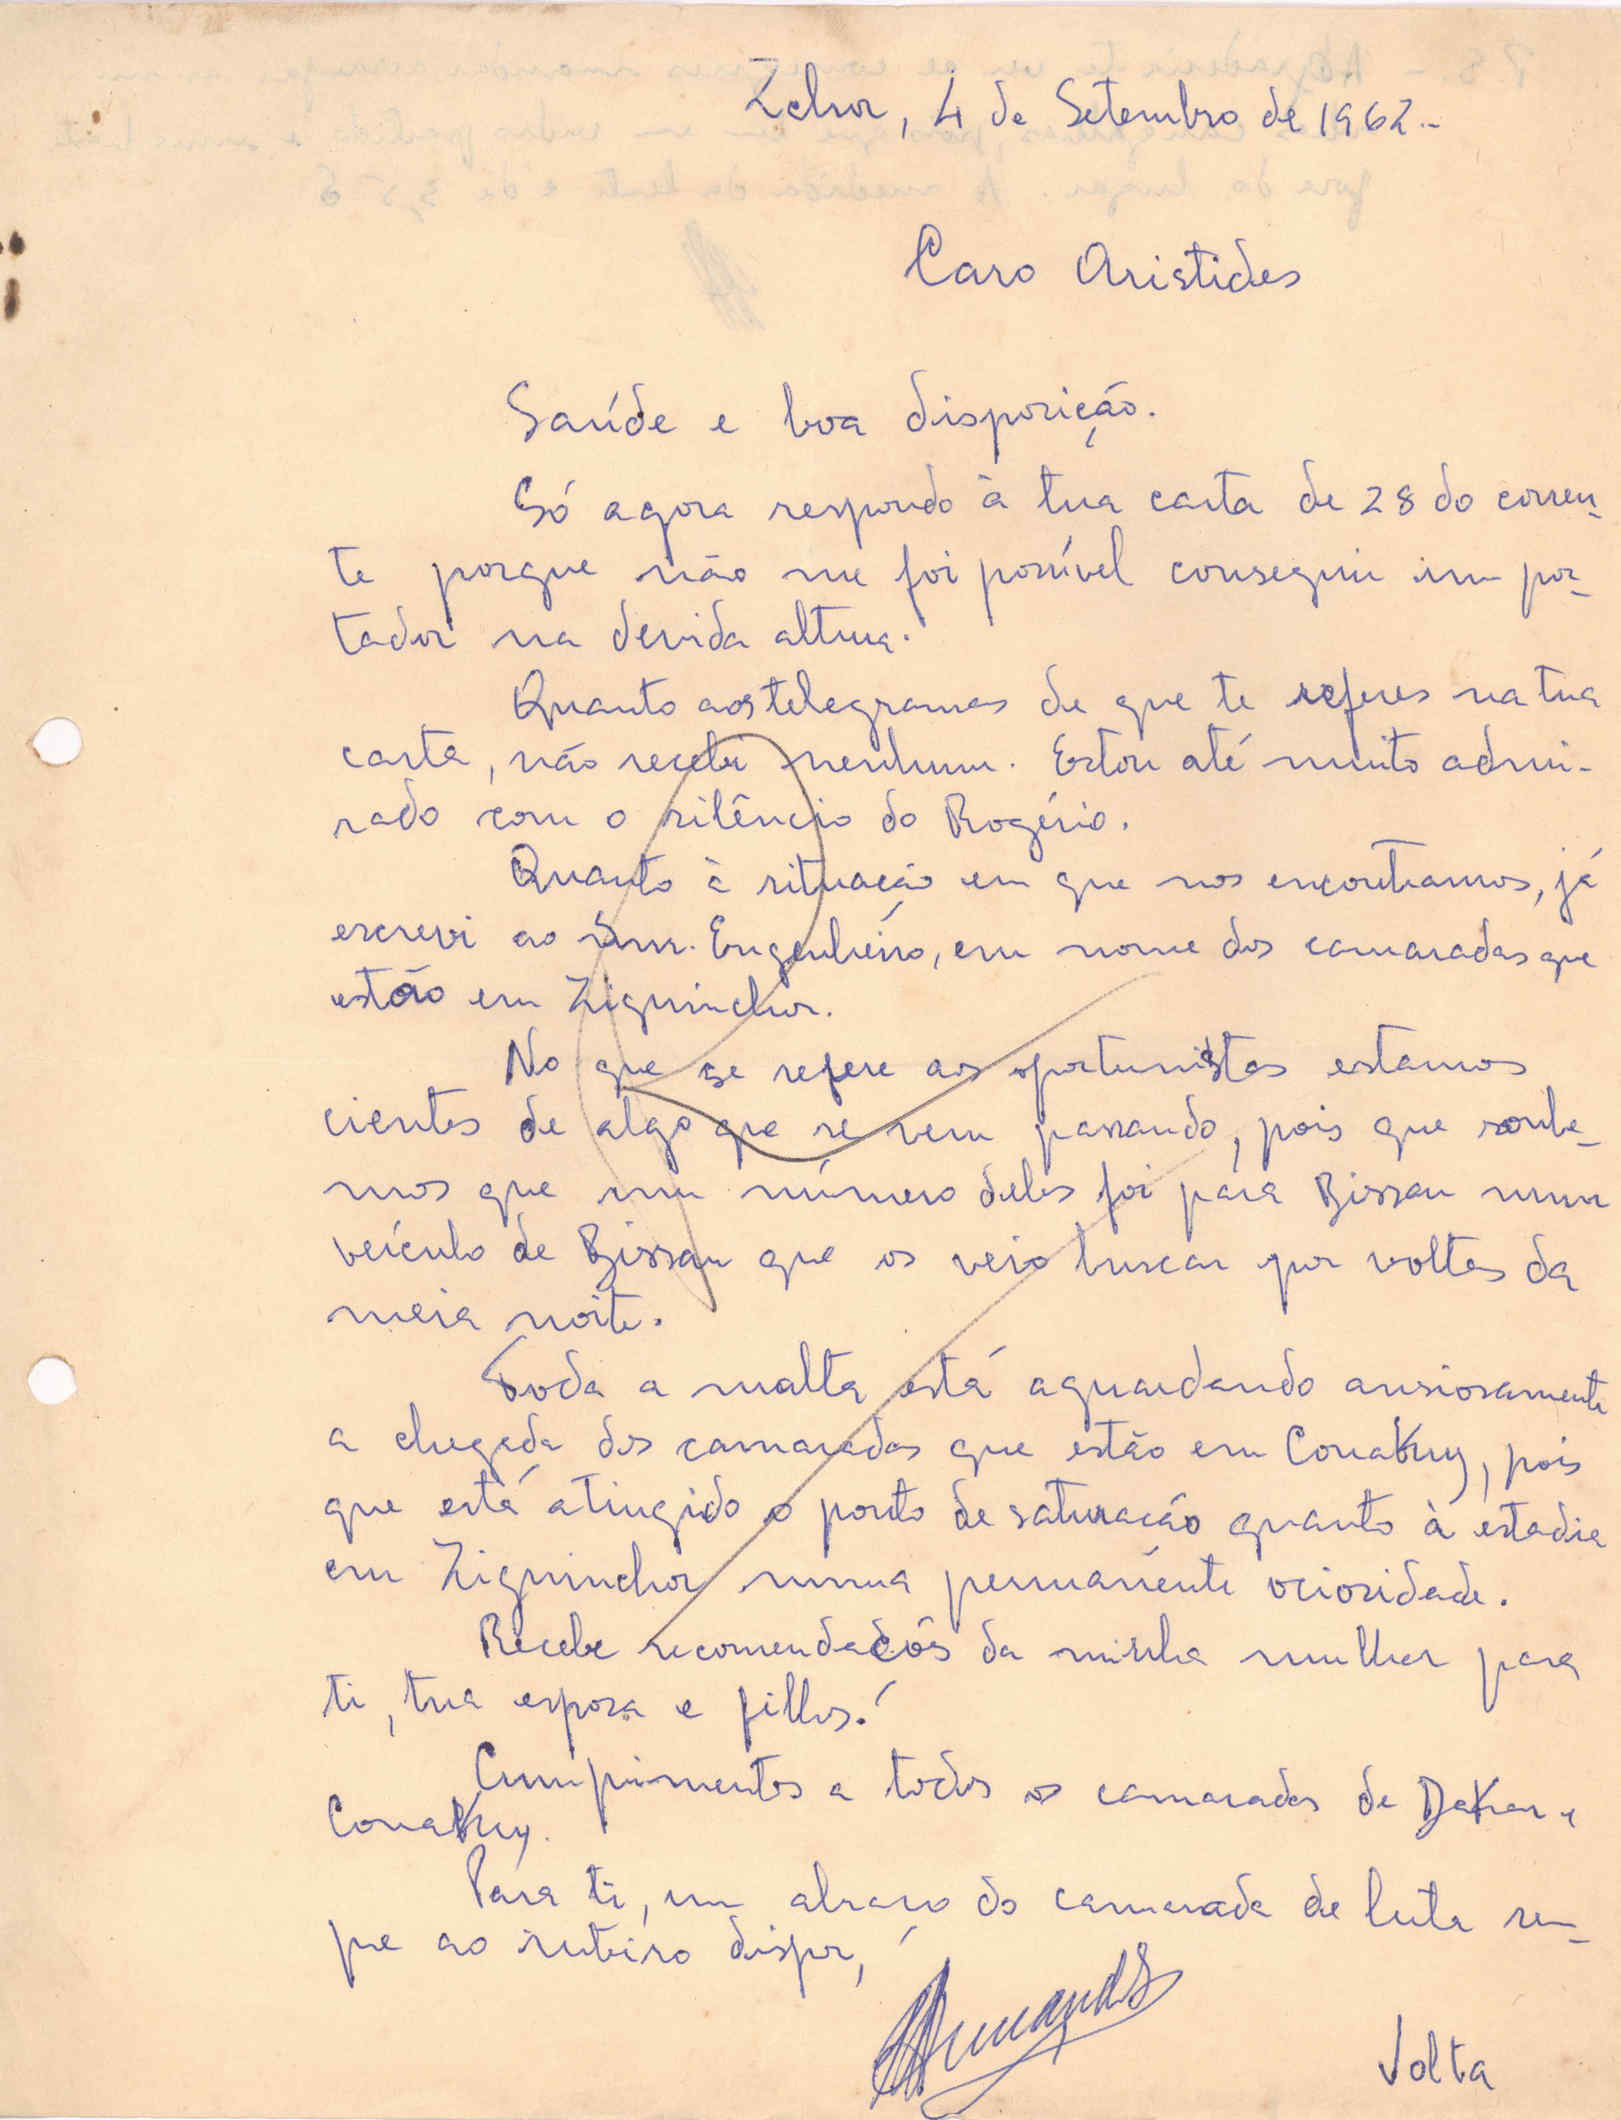 Zchor, 4 de Setembro de 1962.-
Caro Aristides
Saúde e boa disposição.
Só agora respondo à tua carta de 28 do corren-
te porque não me foi possível conseguir um por-
tador na devida altura.
Quanto aos telegramas de que te referes na tua
carta, não recebi nenhum. Estou até muito admi-
rado com o silêncio do Rogério.
Quanto à situação em que nos encontramos, já
escrevi ao Snr. Engenheiro, em nome dos camaradas que
estão em Ziguinchor.
No que se refere aos oportunistas estamos
cientes de algo que se vem passando, pois que soube-
mos que um número deles foi para Bissau num
veículo de Bissau que os veio buscar por voltas da
meia noite.
Toda a malta está aguardando ansiosamente
a chegada dos camaradas que estão em Conakry, pois
que está atingido o ponto de saturação quanto à estadia
em Ziguinchor numa permanente ociosidade.
Recebe recomendações da minha mulher para
ti, tua esposa e filhos.
Cumprimentos a todos os camaradas de Dakar e
Conakry.
Para ti, um abraço do camarada de luta sem-
pre ao inteiro dispor,
Armando
Volta